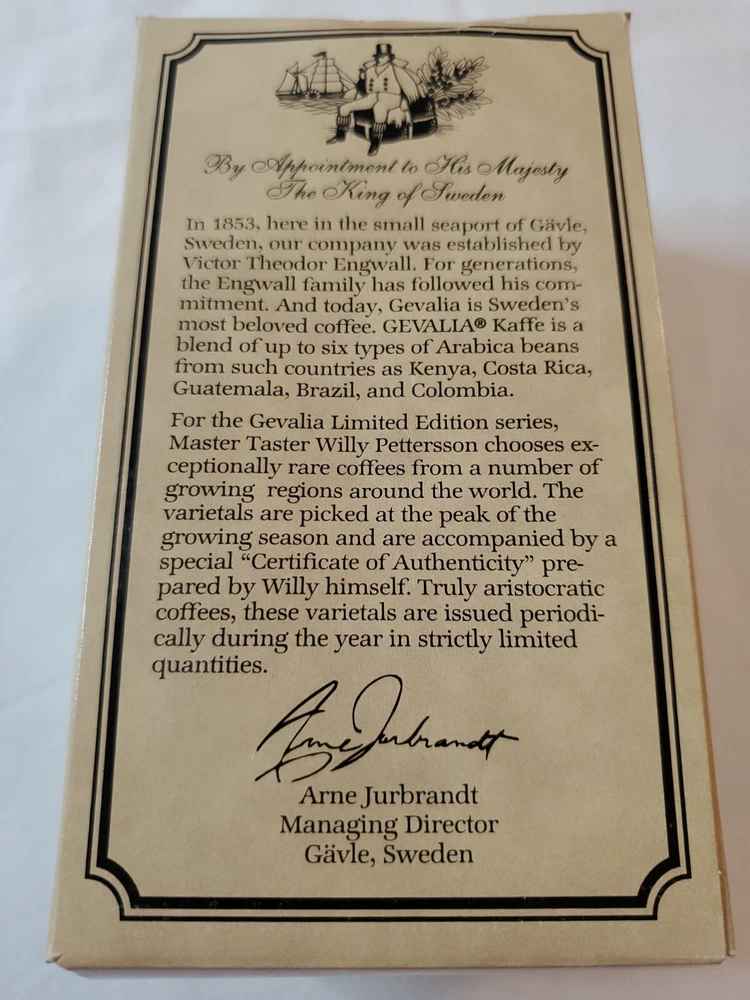 By Appointment to His Majesty
The King of Sweden
In 1853, here in the small seaport of Gävle,
Sweden, our company was established by
Victor Theodor Engwall. For generations,
the Engwall family has followed his com-
mitment. And today, Gevalia is Sweden's
most beloved coffee. GEVALIA® Kaffe is a
blend of up to six types of Arabica beans
from such countries as Kenya, Costa Rica,
Guatemala, Brazil, and Colombia.
For the Gevalia Limited Edition series,
Master Taster Willy Pettersson chooses ex-
ceptionally rare coffees from a number of
growing regions around the world. The
varietals are picked at the peak of the
growing season and are accompanied by a
special “Certificate of Authenticity” pre-
pared by Willy himself. Truly aristocratic
coffees, these varietals are issued periodi-
cally during the year in strictly limited
quantities.
Arne Jurbrandt
Arne Jurbrandt
Managing Director
Gävle, Sweden